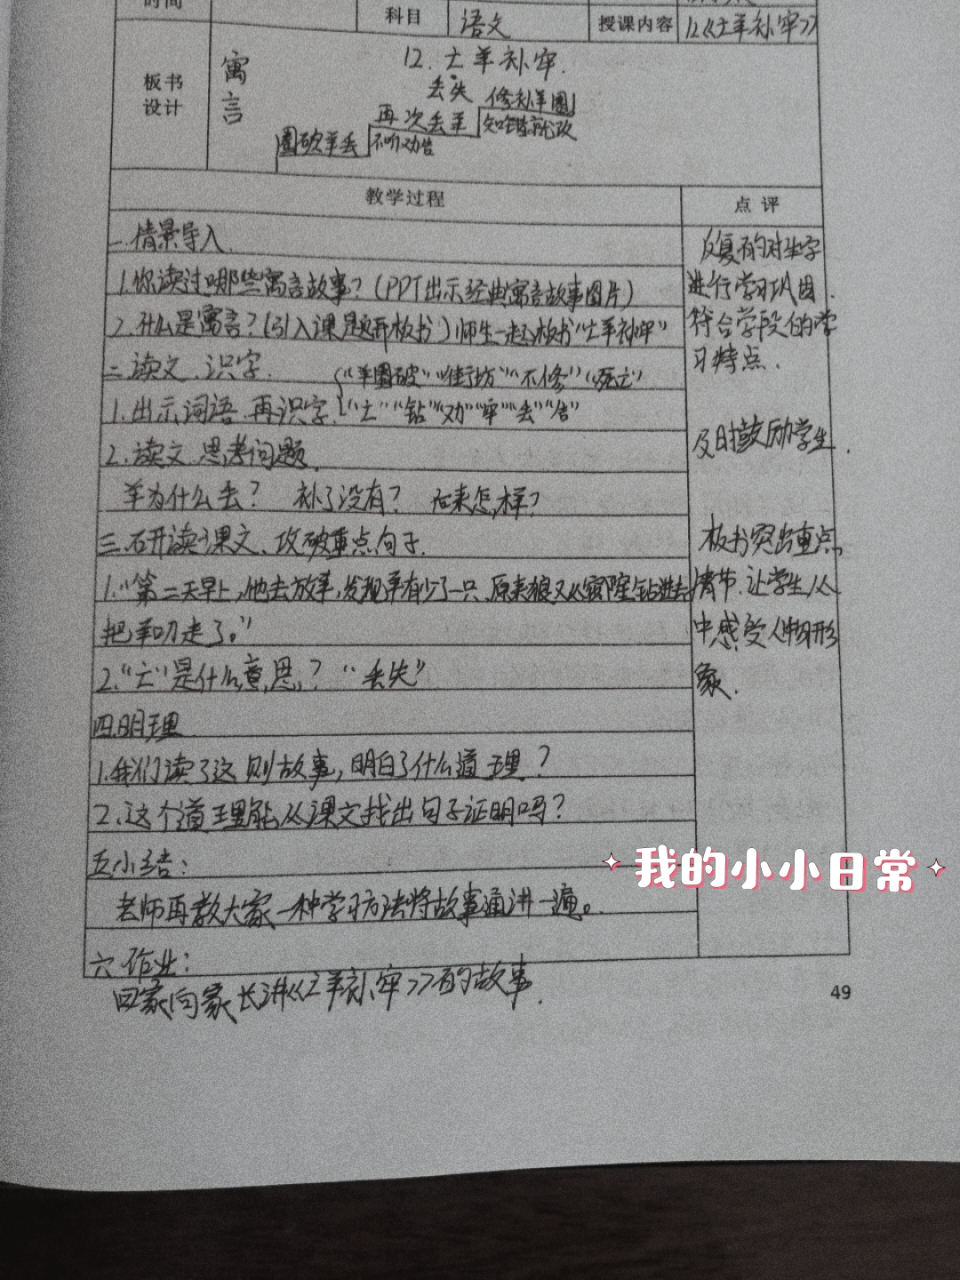 时间
科目 语文 授课内容 12《亡羊补牢》
板书设计
寓言
12.亡羊补牢.
丢失
修补羊圈
再次丢羊 知错就改
圈破羊丢 不听劝告
教学过程 点评
一.情景导入.
1.你读过哪些寓言故事?(PPT出示经典寓言故事图片)
2.什么是寓言?(引入课题开板书)师生一起板书"亡羊补牢"
二.读文.识字.
"羊圈破""街坊""不修""死亡"
1.出示词语.再识字.{"亡""钻""劝""牢""丢""告"
2.读文.思考问题.
羊为什么丢? 补了没有? 后来怎样?
三.研读课文、攻破重点句子.
1."第二天早上,他去放羊,发现羊有少了一只.原来狼又从窟窿钻进去
把羊叼走了。"
2."亡"是什么意思? "丢失"
四.明理
1.我们读了这则故事,明白了什么道理?
2.这个道理能从课文找出句子证明吗?
五小结:
老师再教大家一种学习方法将故事通讲一遍。
六.作业:
回家向家长讲《亡羊补牢》的故事.
反复的对生字
进行学习巩固.
符合学段的学
习特点.
及时鼓励学生.
板书突出重点
情节.让学生从
中感受人物形
象.
我的小小日常
49